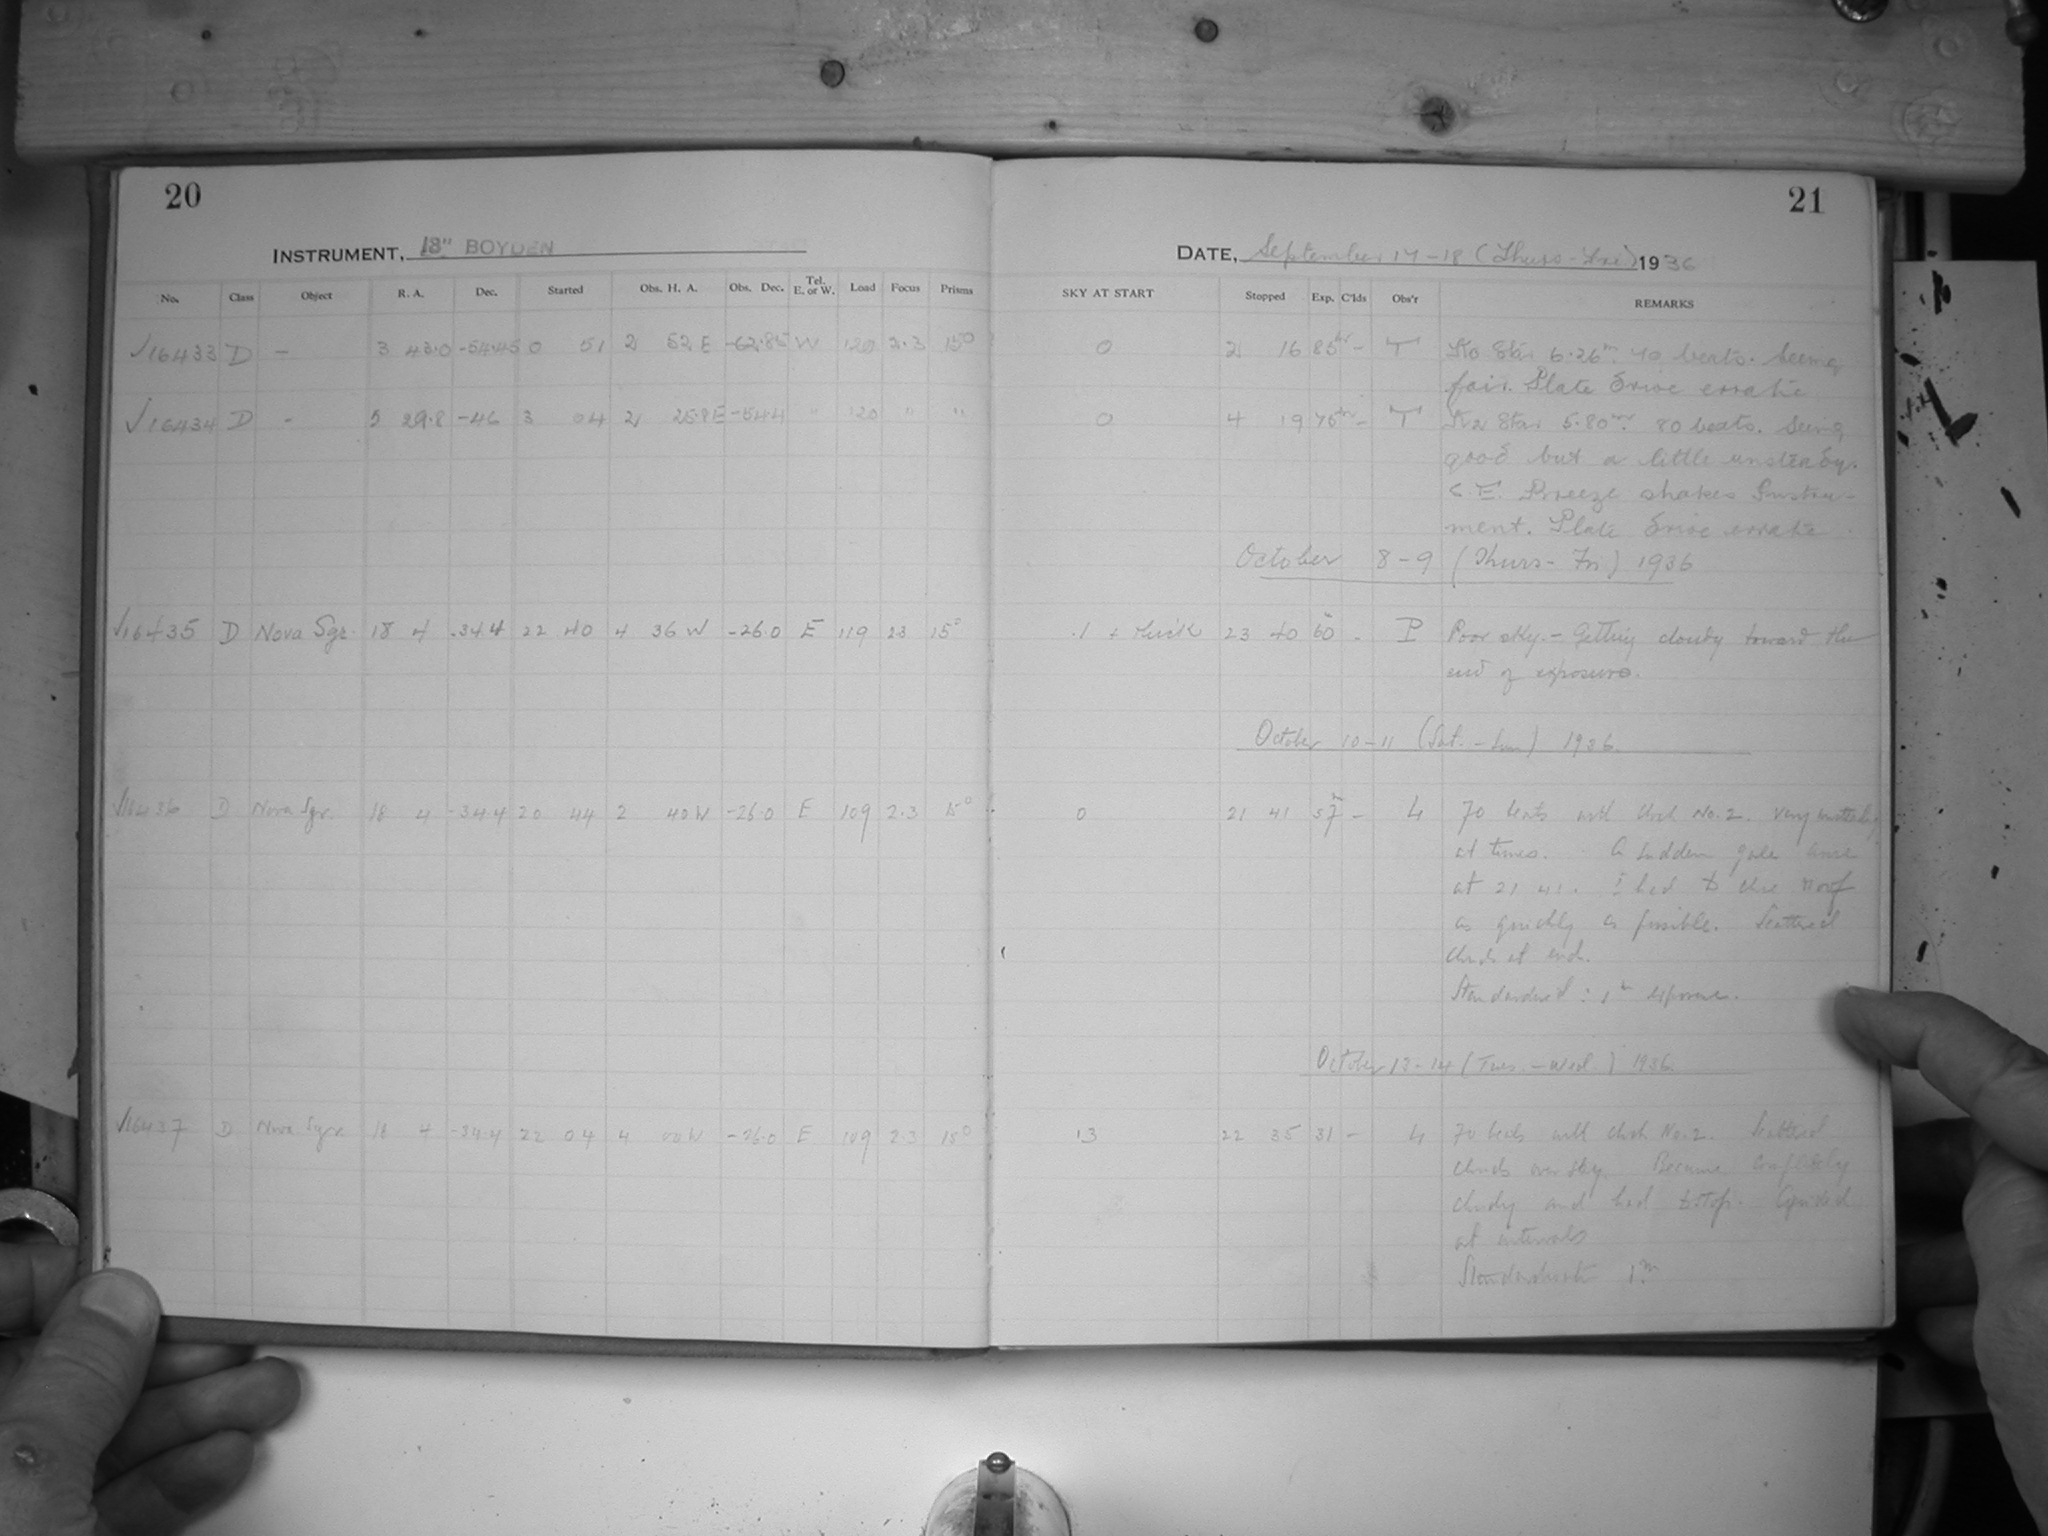 20
21
INSTRUMENT, 18" BOYDEN
DATE, September 17-18 (Thurs-Fri) 1936
No. Class Object R. A. Dec. Started Obs. H. A. Obs. Dec. Tel. E. or W. Load Focus Prisms SKY AT START Stopped Exp. C'lds Obs'r REMARKS
√16433 D - 3 43.0 -54.45 0 51 2 52 E -62.85 W 120 2.3 15° 0 2 16 85 - T Ko Star 6.26m. 70 beats. Seeing
fair. Plate Drive erratic
√16434 D - 5 29.8 -46 3 04 2 25.8E -54.4 " 120 " " 0 4 19 75 - T K2 Star 5.80m. 80 beats. Seeing
good but a little unsteady.
S E. Breeze shakes Instru-
ment. Plate Drive erratic
October 8-9 (Thurs-Fri) 1936
√16435 D Nova Sgr. 18 4 -34.4 22 40 4 36 W -26.0 E 119 2.3 15° .1 + thick 23 40 60m - P Poor sky. - Getting cloudy toward the
end of exposure.
October 10-11 (Sat.-Sun) 1936
√16436 D Nova Sgr. 18 4 -34.4 20 44 2 40 W -26.0 E 109 2.3 15° 0 21 41 57m - 4 70 beats with clock No. 2. Very unsteady
at times. A sudden gale arose
at 21 41. I had to close roof
as quickly as possible. Scattered
clouds at end.
Standardized: 1m exposure.
October 13-14 (Tues.-Wed.) 1936
√16437 D Nova Sgr. 18 4 -34.4 22 04 4 00 W -26.0 E 109 2.3 15° .3 22 35 31 - 4 70 beats with clock No. 2. Scattered
clouds over sky. Became completely
cloudy and had to stop. Guided
at intervals
1m